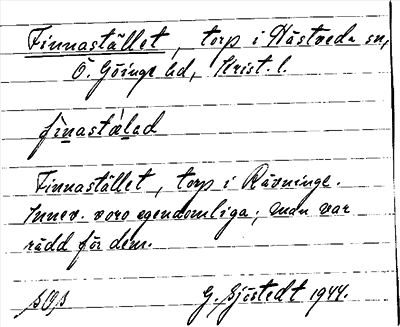 Finnastället, torp i Hästveda sn,
Ö. Göinge hd, Krist. l.
finastälad
Finnastället, torp i Rävninge.
Innev. voro egendomliga; man var
rädd för dem.
G. Sjöstedt 1944.